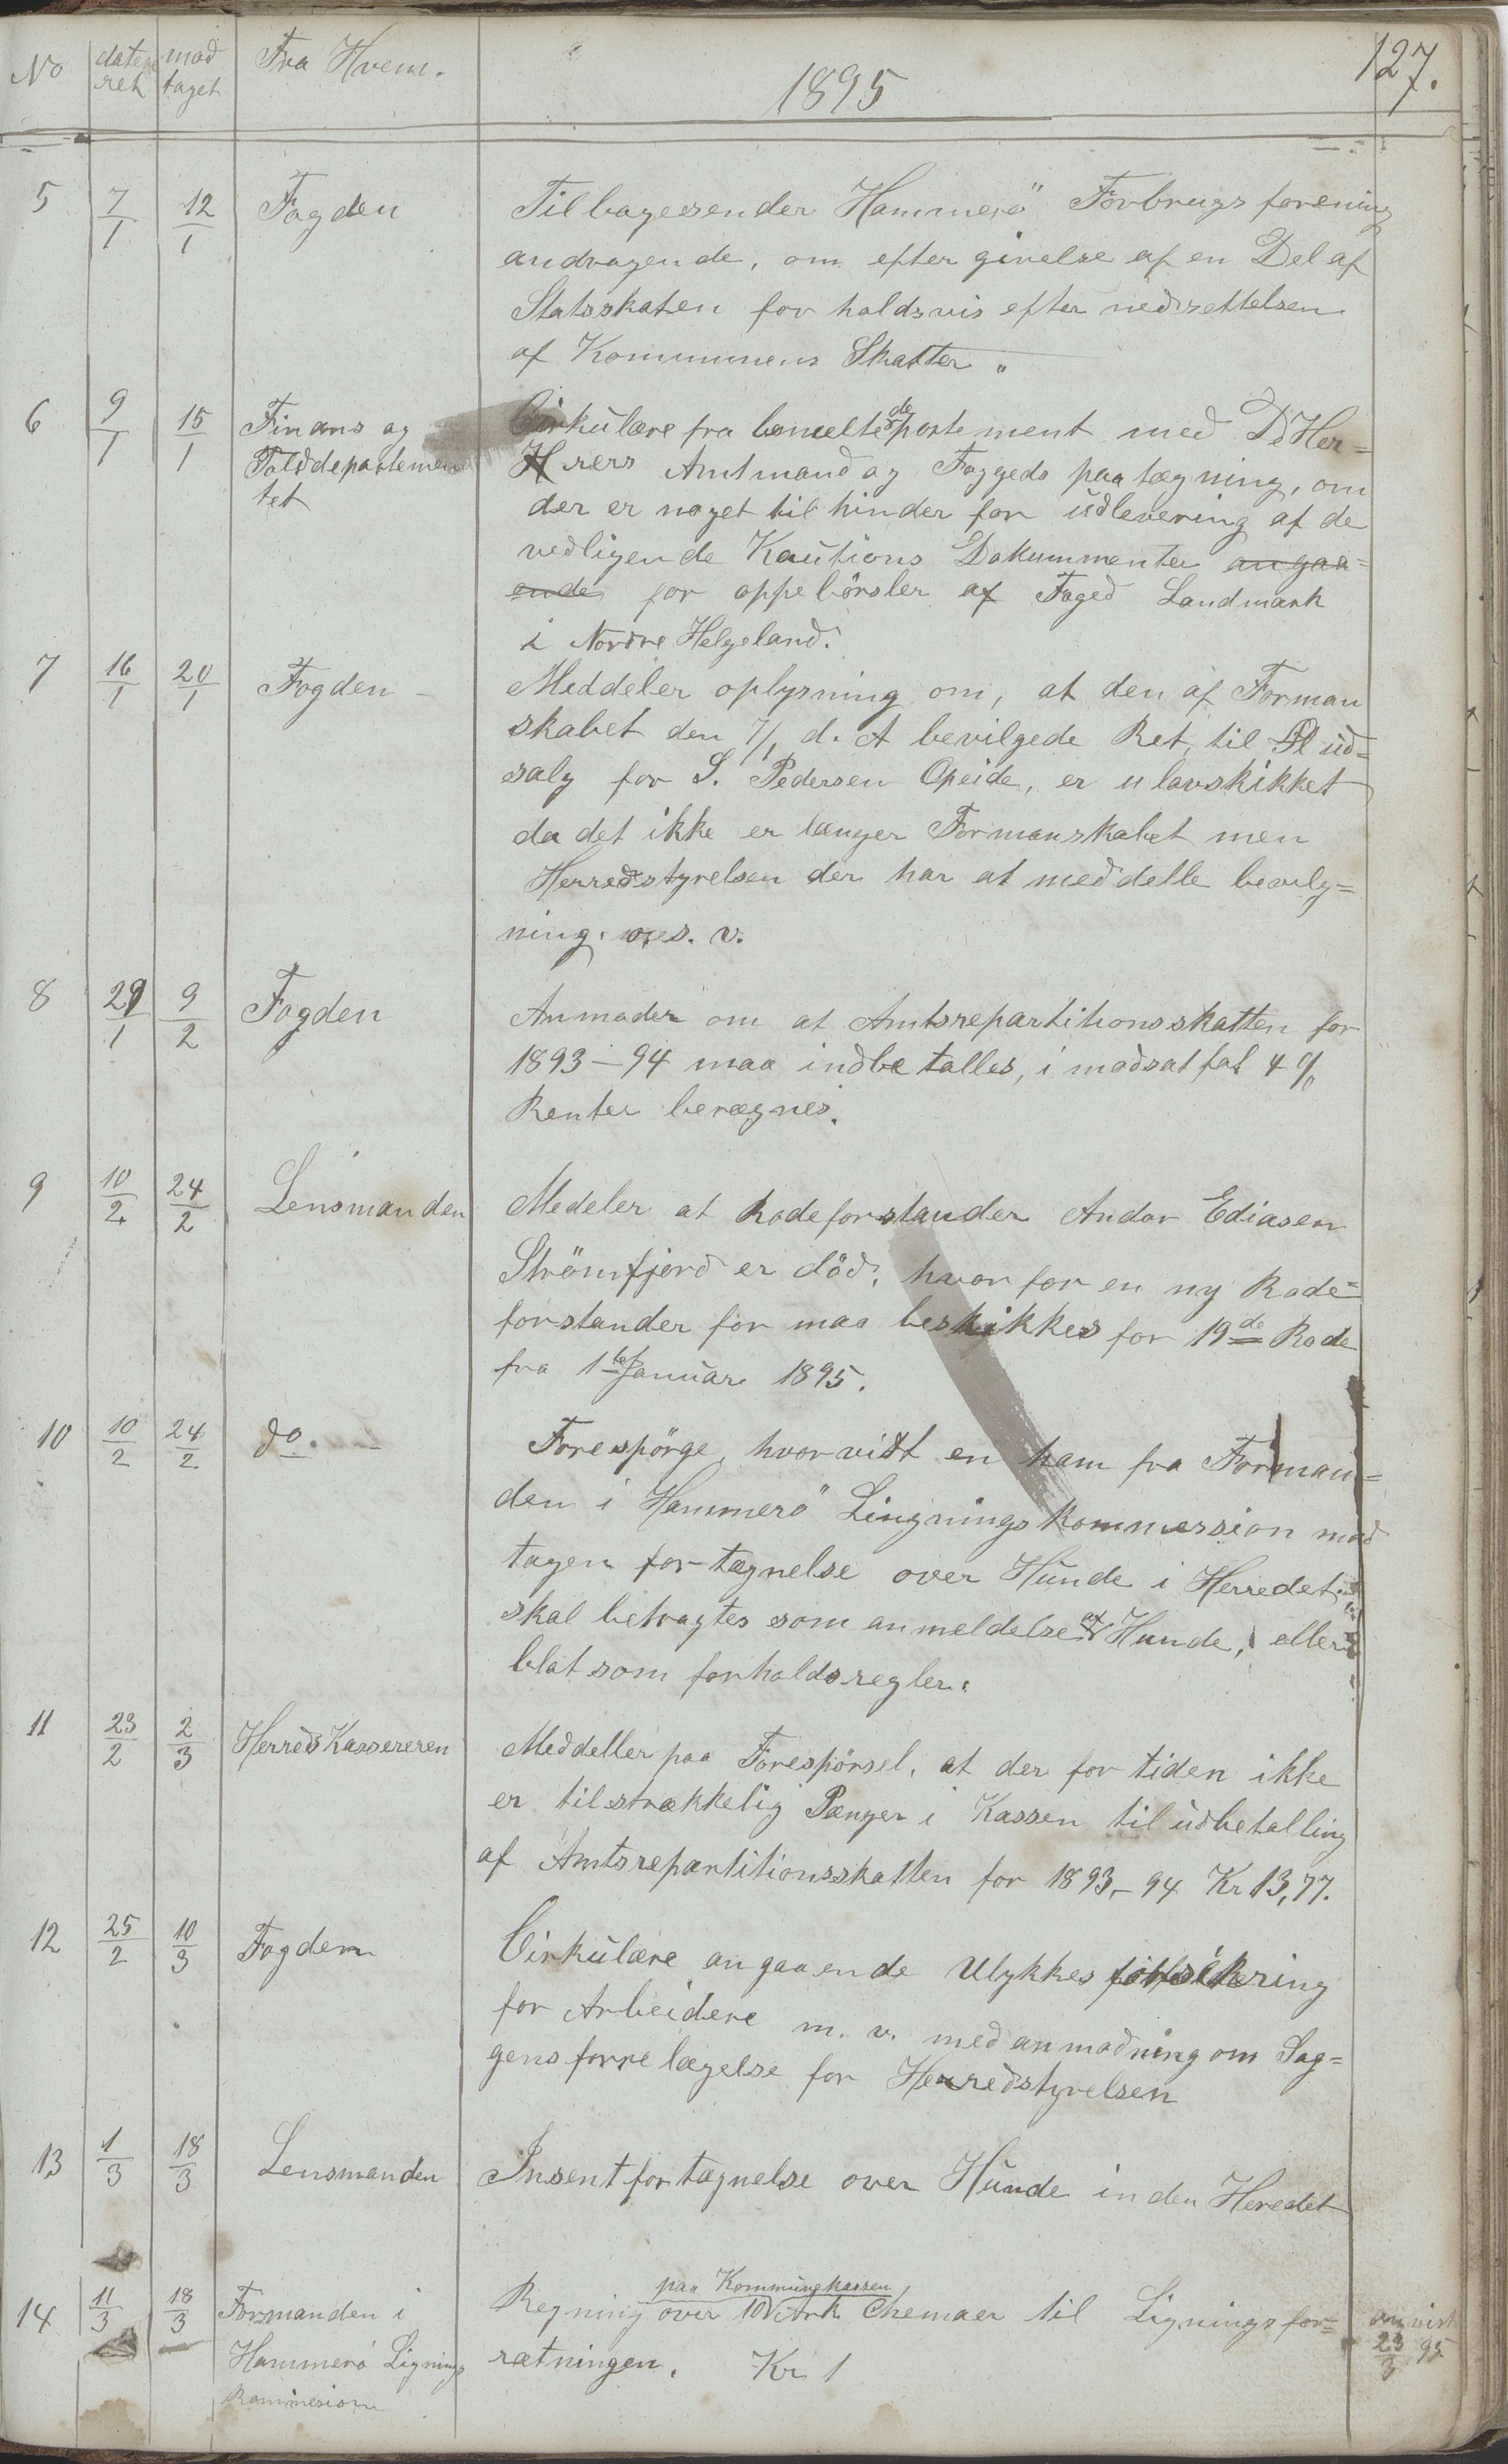 127.
No dateret modtaget Fra Hvem. 1895
5 7/1 12/1 Fogden Tilbagesender Hammerö Forbrugsforening
andragende, om efter givelse af en Del af
Statsskaten forholdsvis efter nedsettelsen
af Kommunens Skatter.
6 9/1 15/1 Finans og Cirkulære fra bemelte departement med D'Her=
Tolddepartemen rers Amtmand og Foggeds paategning, om
tet der er noget til hinder for udlevering af de
vedligende Kautions Dokummenter angaa=
ende for oppebörsler af Foged Landmark
i Nordre Helgeland.
7 16/1 20/1 Fogden – Meddeler oplysning om, at den af Forman
skabet den 7/1 d. A bevilgede Ret, til Öl ud=
salg for S. Pedersen Opeide, er ulovskikket
da det ikke er længer Formanskabet men
Herredstyrelsen der har at meddelle bevilg=
ning. o. s. v.
8 29/1 9/2 Fogden Anmoder om at Amtsrepartitionsskatten for
1893–94 maa indbetalles, i modsat fal 4 %
Renter beregnes.
9 10/2 24/2 Lensmanden Medeler at Rodeforstander Andor Ediasen
Strömfjord er död, hvor for en ny Rode=
forstander for maa beskikkes for 19de Rode
fra 1ste Januar 1895.
10 10/2 24/2 do. – Forespörge, hvorvidt en ham fra Forman=
den i Hammerö Lingnings Kommersion mod
tagen fortegnelse over Hunde i Herredet,
skal betragtes som anmeldelse af Hunde, eller
blat som forholdsregler.
11 23/2 2/3 HerredsKassereren Meddeller paa Forespörsel, at der for tiden ikke
er tilstrækkelig Pænger i Kassen til udbetalling
af Amtsrepartitionsskatten for 1893–94 Kr 13,77.
12 25/2 10/3 Fogden Cirkulære angaaende Ulykkesforsikring
for Arbeidere m. v. med anmodning om Sag=
gens forrelægelse for Herredstyrelsen
13 1/3 18/3 Lensmanden Insent fortegnelse over Hunde inden Heredet
14 11/3 18/3 Formanden i Regning paa Kommunekassen over 10 Ark Chemaer til Ligningsfor= anvist
Hammerö Lignings rætningen. Kr 1 23/3 95
Kommesion